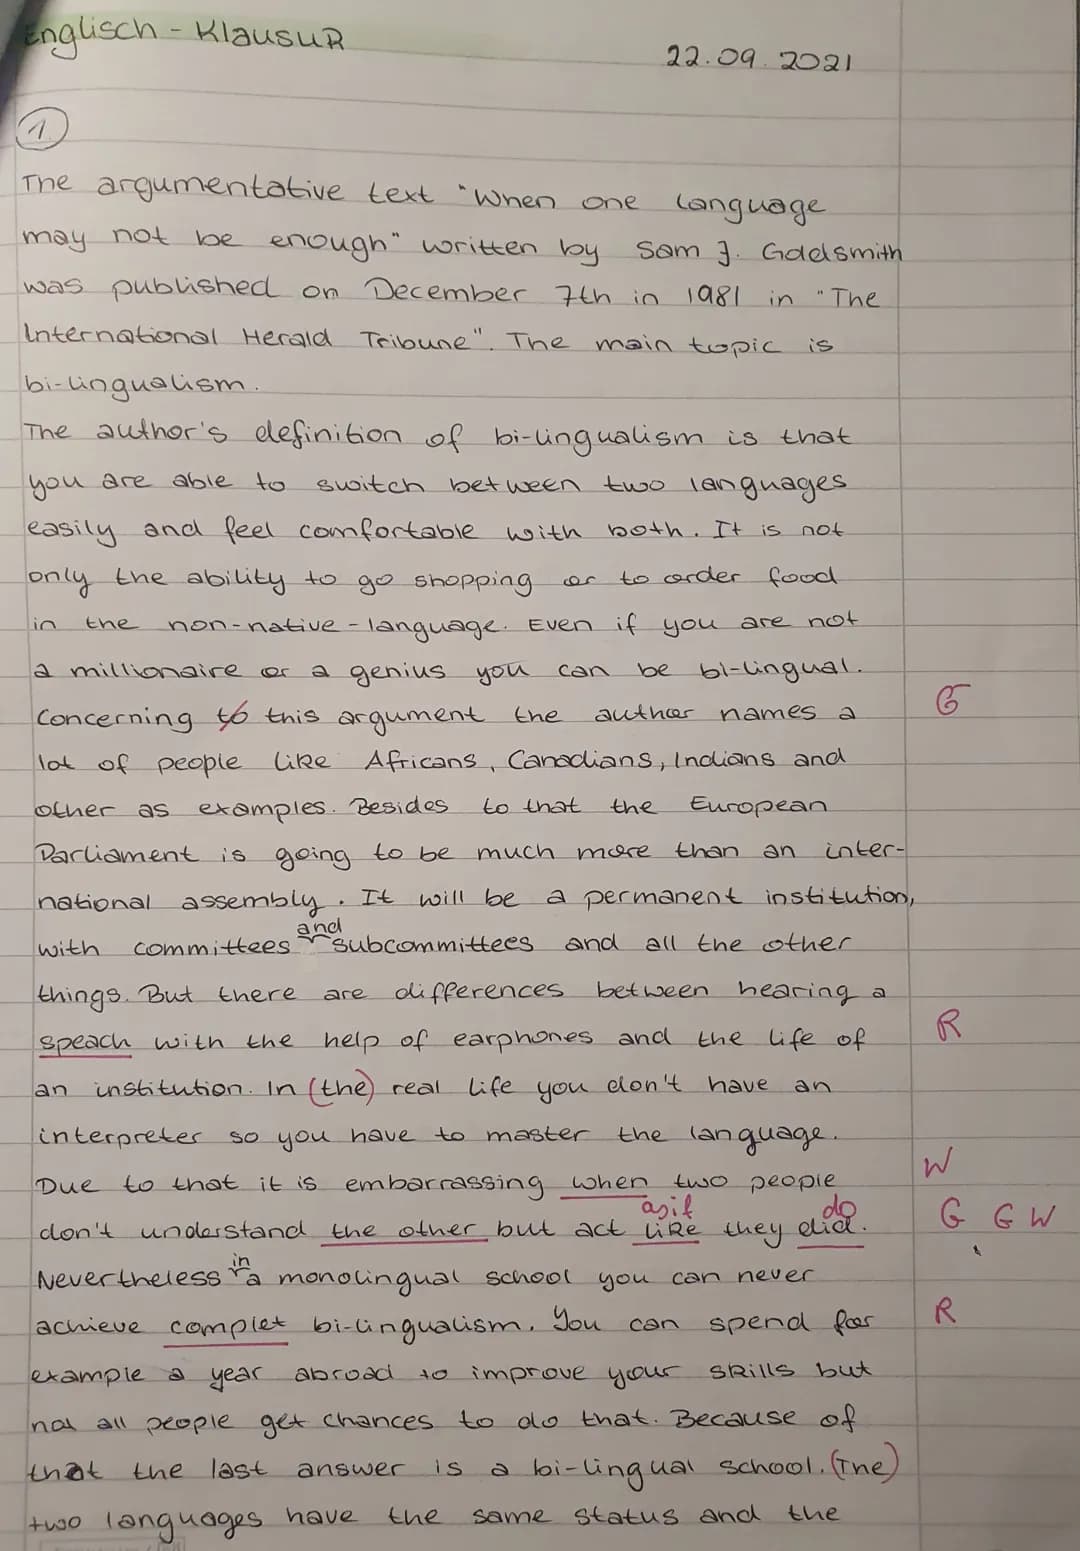 Englisch - Klausur
22.09.2021
1.
The argumentative text "When one language
may not be enough" written by Sam J. Goldsmith
was published on December 7th in 1981 in "The
International Herald Tribune". The main topic is
bi-lingualism.
The author's definition of bi-lingualism is that
you are able to switch between two languages
easily and feel comfortable with both. It is not
only the ability to go shopping or to order food
in the non-native-language. Even if you are not
a millionaire or a genius you can be bi-lingual.
Concerning to this argument the author names a G
lot of people like Africans, Canadians, Indians and
other as examples. Besides to that the European
Parliament is going to be much more than an inter-
national assembly. It will be a permanent institution,
with committees and subcommittees and all the other
things. But there are differences between hearing a
speach with the help of earphones and the life of R
an institution. In (the) real life you don't have an
interpreter so you have to master the language.
Due to that it is embarrassing when two people W
as if do
don't understand the other but act like they did. G G W
Nevertheless in a monolingual school you can never
achieve complet bi-lingualism. You can spend for R
example a year abroad to improve your skills but
not all people get chances to do that. Because of
that the last answer is a bi-lingual school. (The)
two languages have the same status and the